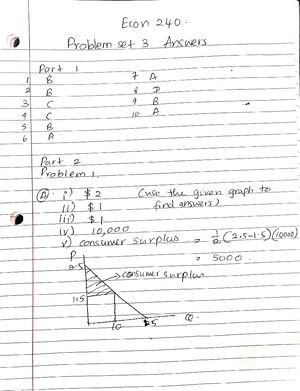 Econ 240.
Problem set 3 Answers
Part 1
1 B 7 A
2 B 8 D
3 C 9 B
4 C 10 A
5 B
6 A
Part 2
Problem 1.
(A) i) $2 (use the given graph to
ii) $1 find answers)
iii) $1
iv) 10,000
v) consumer surplus = 1/2 (2.5-1.5)(10000)
= 5000.
P
2.5
consumer surplus
1.5
10 25 Q.